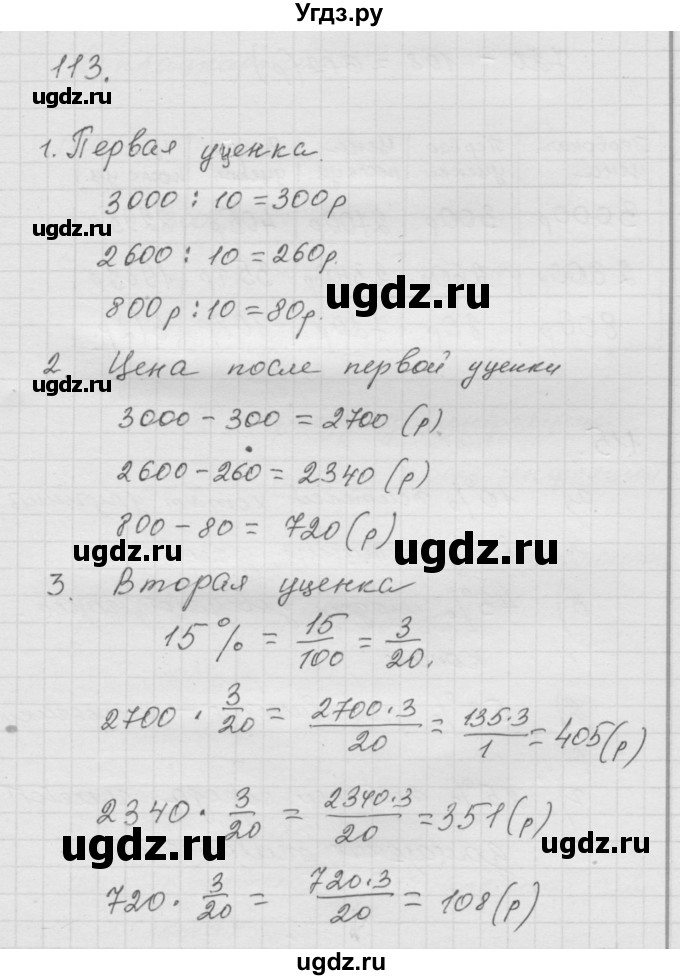 Угдз.ру
113.
ugdz.ru
1. Первая уценка.
3000 : 10 = 300р
ugdz.ru
2600 : 10 = 260р.
ugdz.ru
800р : 10 = 80р.
2 Цена после первой уценки
3000 - 300 = 2700 (р).
2600 - 260 = 2340 (р)
800 - 80 = 720 (р)
ugdz.ru ugdz.ru
3. Вторая уценка
15% = 15/100 = 3/20.
2700 · 3/20 = 2700·3/20 = 135·3/1 = 405 (р)
2340 · 3/20 = 2340·3/20 = 351 (р)
ugdz.ru ugdz.ru
720 · 3/20 = 720·3/20 = 108 (р)
ugdz.ru
ugdz.ru